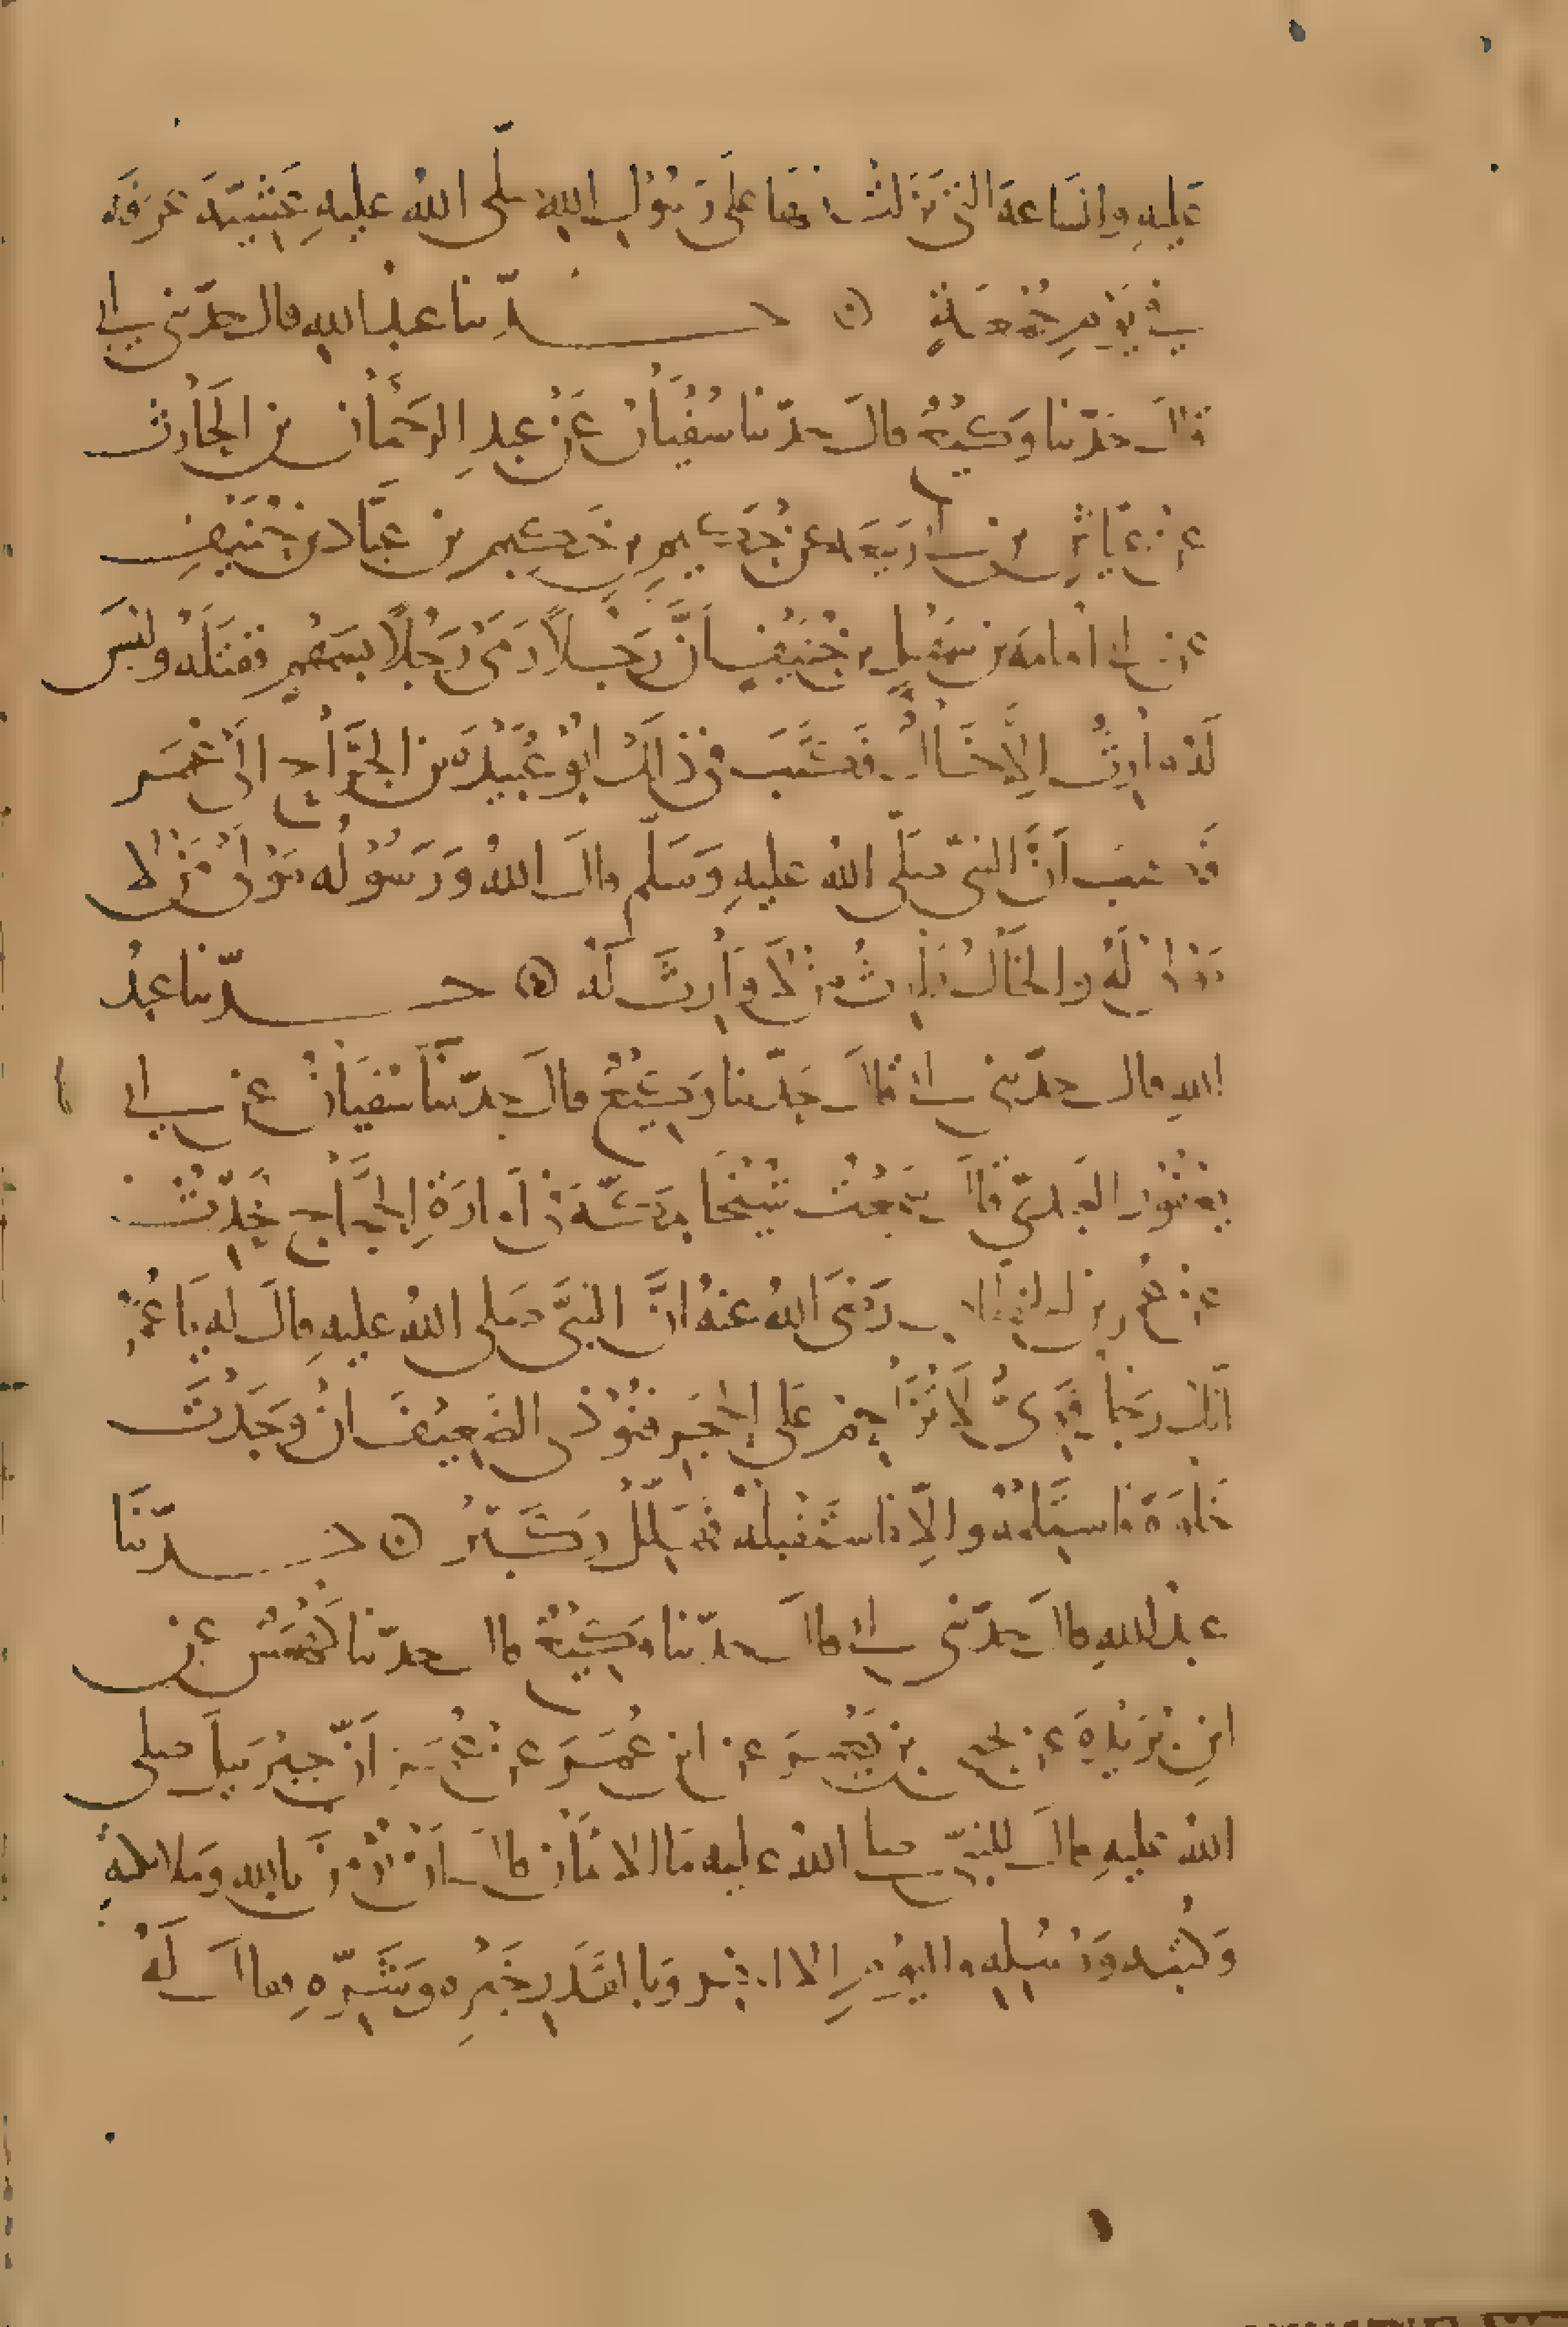 عليه والساعة التي نزلت فيها على رسول الله صلى الله عليه عشية عرفة
في يوم جمعة ن حدّثنا عبد الله قال حدّثني ابي
قال حدّثنا وكيع قال حدّثنا سفيان عن عبد الرحمان بن الحارث
عن عياش بن ابي ربيعة عن حكيم بن حكيم بن عباد بن حنيف
عن ابي امامة بن سهل بن حنيف انّ رجلاً رمى رجلاً بسهم فقتله وليس
له وارث الا خال فكتب في ذلك ابو عبيدة بن الجرّاح الى عمر
فكتب انّ النبيّ صلّى الله عليه وسلّم قال الله ورسوله مولى من لا
مولى له والخال وارث من لا وارث له ن حدّثنا عبد
الله قال حدّثني ابي قال حدّثنا وكيع قال حدّثنا سفيان عن ابي
يعفور العبديّ قال سمعت شيخا بمكّة في امارة الحجّاج يحدّث
عن عمر بن الخطاب رضى الله عنه انّ النبيّ صلى الله عليه قال له يا عمر
انك رجل قوىّ لا تزاحم على الحجر فتؤذى الضعيف ان وجدت
خلوة فاستلمه والّا فاستقبله فهلّل وكبّر ن حدّثنا
عبد الله قال حدّثني ابي قال حدّثنا وكيع قال حدّثنا كهمس عن
ابن بريدة عن يحيى بن يعمر عن ابن عمر عن عمر انّ جبريل صلى
الله عليه قال للنبيّ صلى الله عليه ما الايمان قال ان تؤمن بالله وملائكته
وكتبه ورسله واليوم الاخر وبالقدر خيره وشرّه فقال له